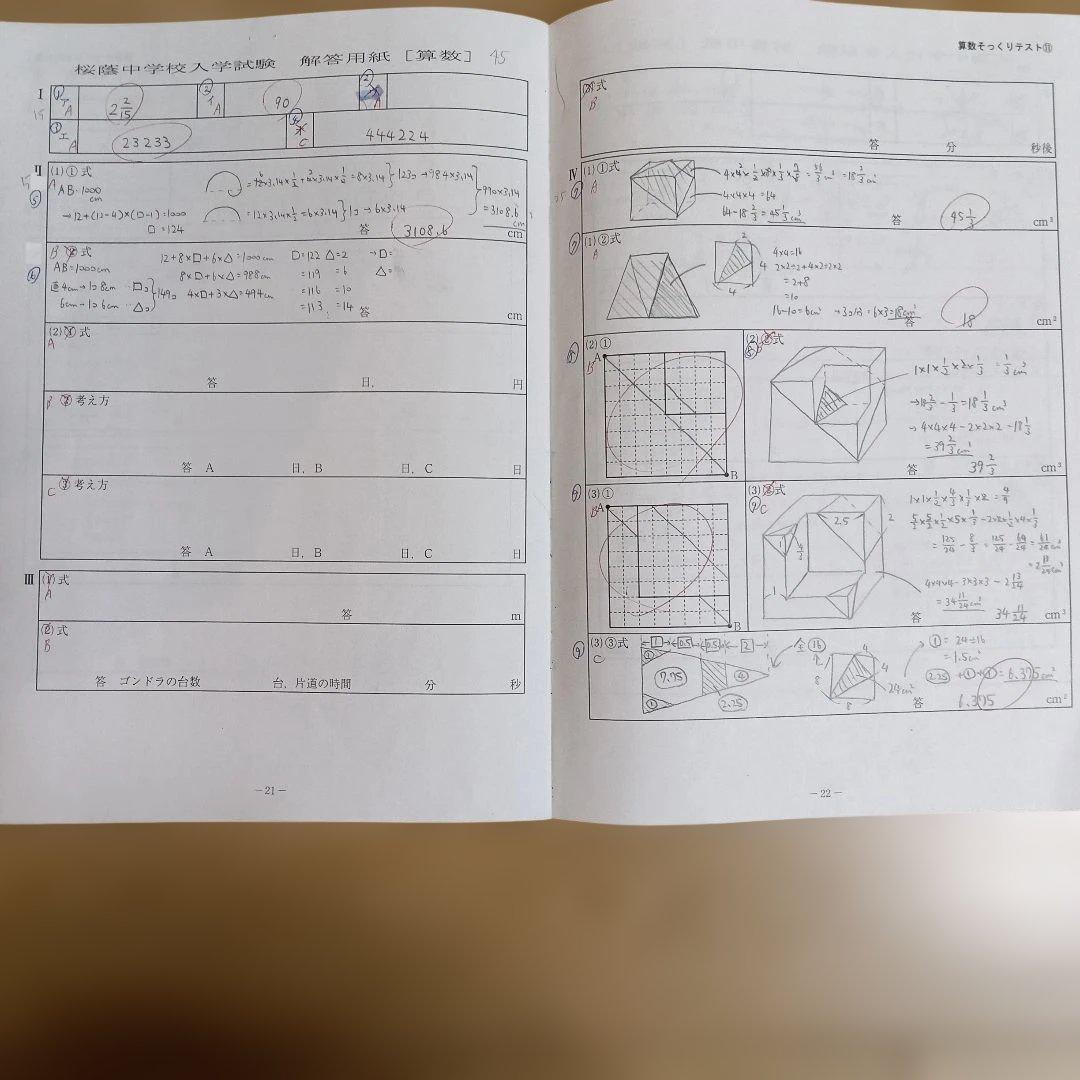 桜蔭中学校入学試験 解答用紙［算数］ 45
Ⅰ ① ア A 2 2/15 ② イ A 90 ② A
15
① エ A 23233 ④ C 444224
Ⅱ (1) ① 式
A AB=1000cm
→12+(12-4)×(□-1)=1000
□=124
=8×3.14
=12×3.14×1/2=6×3.14
→6×3.14
123コ→984×3.14
990×3.14
=3108.6cm
答 3108.6 cm
B ② 式
AB=1000cm
12+8×□+6×△=1000cm
8×□+6×△=988cm
4×□+3×△=494cm
149コ
□=122 △=2 →□=
=119 =6 △=
=116 =10
=113 =14
答 cm
(2) ① 式
A
答 日, 円
B ② 考え方
答 A 日, B 日, C 日
C ③ 考え方
答 A 日, B 日, C 日
Ⅲ (1) 式
A
答 m
(2) 式
B
答 ゴンドラの台数 台, 片道の時間 分 秒
－21－
算数そっくりテスト⑪
(3) 式
B
答 分 秒後
Ⅳ (1) ① 式
A
=18 2/3 cm³
4×4×4=64
64-18 2/3=45 1/3 cm³
答 45 1/3 cm³
(1) ②
A
2
4
4
4×4=16
2×2÷2+4×2÷2×2
=2+8
=10
16-10=6cm² →3コ分=6×3=18cm²
答 18 cm²
(2) ①
B
A
B
(2) ② 式
1×1×1/2×2×1/3=1/3 cm³
→18 2/3-1/3=18 1/3 cm³
→4×4×4-2×2×2-18 1/3
=39 2/3 cm³
答 39 2/3 cm³
(3) ①
B
A
B
(3) ② 式
C
2.5
2
4/3
1
1×1×1/2×4/3×1/3×2=4/9
5/2×5/2×1/2×5×1/3-2×2×1/2×4×1/3
=125/24-8/3=125/24-64/24=61/24 cm³
=2 13/24 cm³
4×4×4-3×3×3-2 13/24
=34 11/24 cm³
答 34 11/24 cm³
(3) ③ 式
C
1 0.5 0.5 2
全⑯
7.75
④
①
2.25
4
8
24cm²
①=24÷16
=1.5cm²
=6.375cm²
答 6.375 cm²
－22－